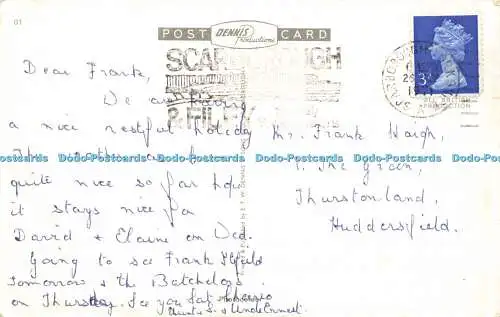 01
POST DENNIS Productions CARD
SCARBOROUGH
& FILEY
SCARBOROUGH
3
Dear Frank,
We are having
a nice restful holiday
The weather has been
quite nice so far hope
it stays nice for
David & Elaine on Wed.
Going to see Frank Ifield
Tomorrow & the Batchelors
on Thursday. See you Sat. Cheerio
Auntie S. & Uncle Ernest
Mr. Frank Haigh,
1, The Green,
Thurstonland,
Huddersfield.
Dodo-Postcards Dodo-Postcards Dodo-Postcards Dodo-Postcards Dodo-Postcards Dodo-Postcards